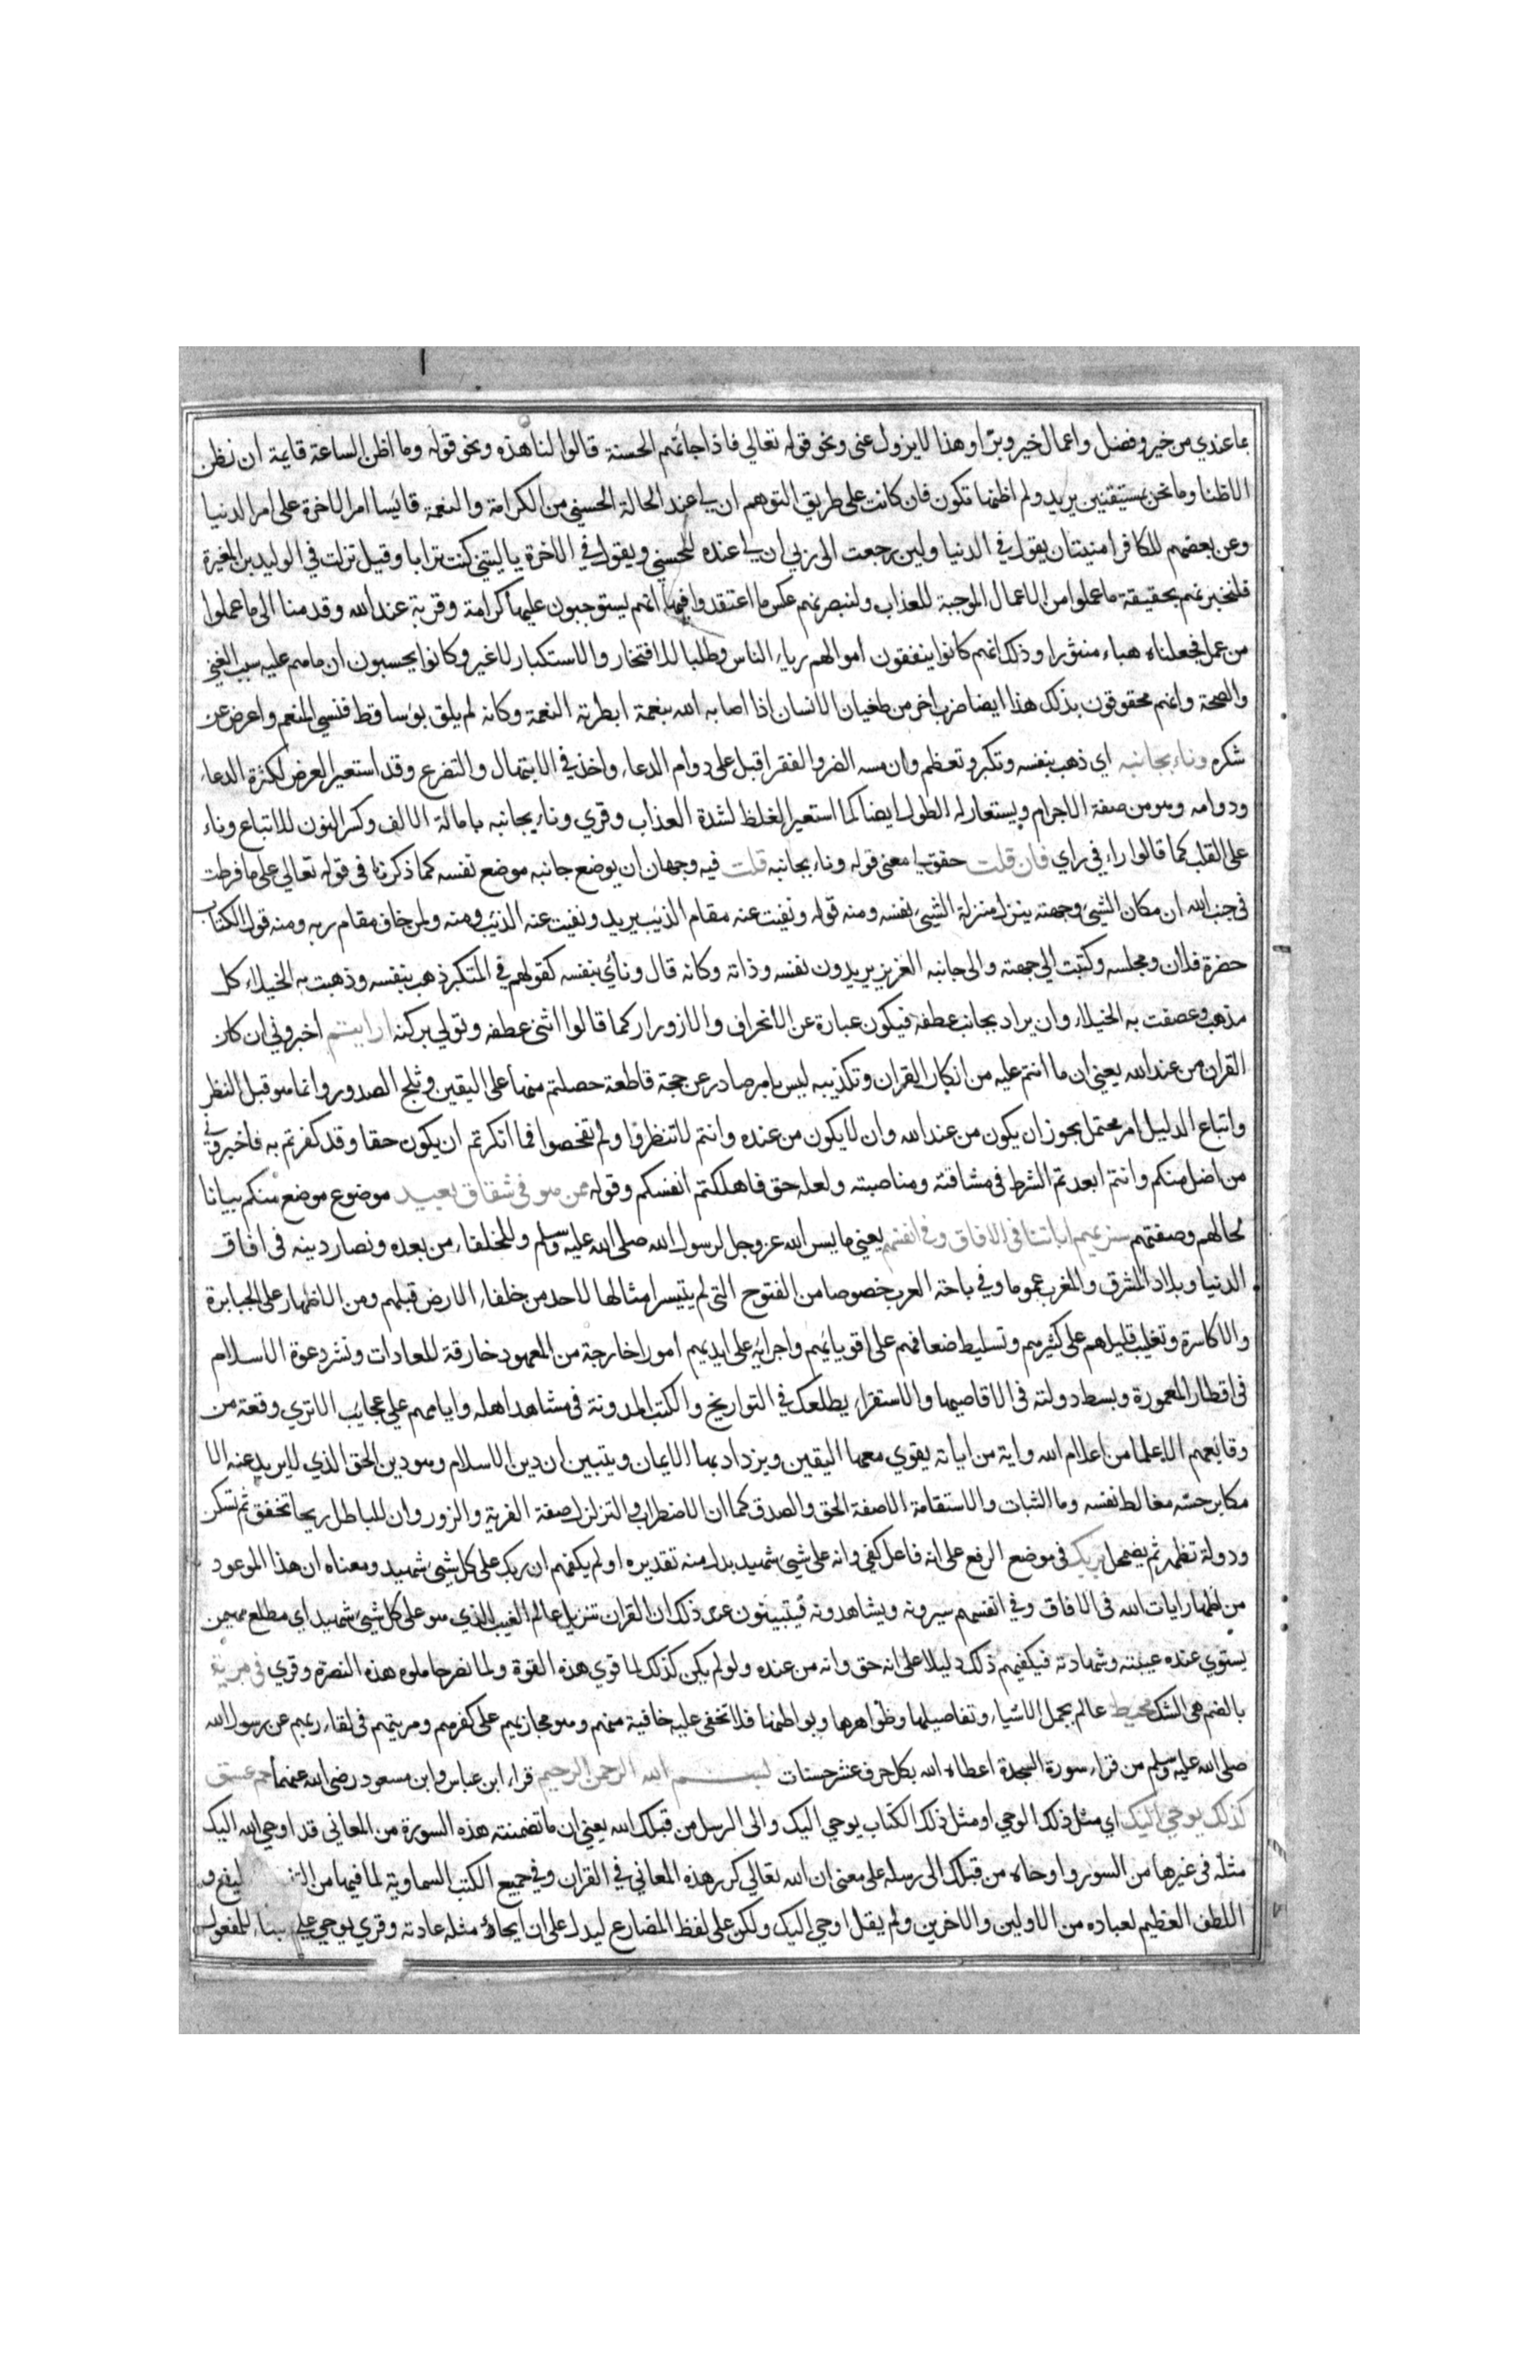 ما عندي من خير وفضل واعمال خير وبرّ او هذا لا يزول عني ونحو قوله تعالي فاذا جائتهم الحسنة قالوا لنا هذه ونحو قوله وما اظن الساعة قايمة ان نظن
الا ظنا وما نحن بمستيقنين يريد ولم اظنها تكون فان كانت علي طريق التوهم ان لي عند الحالة الحسني من الكرامة والنعمة قائيسا امر الاخرة علي امر الدنيا
وعن بعضهم للكافر امنيتان يقول في الدنيا ولين رجعت الي ربي ان لي عنده للحسني ويقول في الاخرة ياليتني كنت ترابا وقيل نزلت في الوليد بن المغيرة
فلنخبرنهم بحقيقة ما عملوا من الاعمال الموجبة للعذاب ولنبصرنهم عكس ما اعتقدوا فيها انهم يستوجبون عليها كرامة وقربة عند الله وقدمنا الي ما عملوا
من عمل فجعلناه هباء منثورا وذلك انهم كانوا ينفقون اموالهم رياء الناس وطلبا للافتخار والاستكبار لا غير وكانوا يحسبون ان ما هم عليه سبب الغني
والصحة وانهم محقوقون بذلك هذا ايضا ضرب اخر من طغيان الانسان اذا اصابه الله بنعمة ابطرته النعمة وكانه لم يلق بوسا قط فنسي المنعم واعرض عن
شكره وناء بجانبه اي ذهب بنفسه وتكبر وتعظم وان مسه الضر والفقر اقبل علي دوام الدعاء واخذ في الابتهال والتضرع وقد استعير العرض لكثرة الدعاء
ودوامه وهو من صفة الاجرام ويستعار له الطول ايضا كما استعير الغلظ لشدة العذاب وقري وناء بجانبه باماله الالف وكسر النون للاتباع وناء
علي القلب كما قالوا راء في راي فان قلت حقق لي معني قوله وناء بجانبه قلت فيه وجهان ان يوضع جانبه موضع نفسه كما ذكرنا في قوله تعالي علي ما فرطت
في جنب الله ان مكان الشيء وجهته ينزل منزلة الشيء نفسه ومنه قوله ونفيت عنه مقام الذئب يريد ونفيت عنه الذئب ومنه ولمن خاف مقام ربه ومنه قول الكتاب
حضرة فلان ومجلسه وكتبت الي جهته والي جانبه العزيز يريدون نفسه وذاته وكانه قال وناي بنفسه كقولهم في المتكبر ذهب بنفسه وذهبت به الخيلاء كل
مذهب وعصفت به الخيلاء وان يراد بجانبه عطفه فيكون عبارة عن الانحراف والازورار كما قالوا اثني عطفه وتولي بركنه ارايتم اخبروني ان كان
القران من عند الله يعني ان ما انتم عليه من انكار القران وتكذيبه ليس بامر صادر عن حجة قاطعة حصلتم منها علي اليقين وثلج الصدور وانما هو قبل النظر
واتباع الدليل امر محتمل يجوز ان يكون من عند الله وان لا يكون من عنده وانتم لا تنظروا ولم تفحصوا فما انكرتم ان يكون حقا وقد كفرتم به فاخبروني
من اضل منكم وانتم ابعدتم الشرط في مشاقته ومناصبته ولعله حق فاهلكتم انفسكم وقوله ممن هو في شقاق بعيد موضوع موضع منكم بيانا
لحالهم وصفتهم سنريهم اياتنا في الافاق وفي انفسهم يعني ما يسر الله عز وجل لرسول الله صلي الله عليه وسلم وللخلفاء من بعده ونصار دينه في افاق
الدنيا وبلاد المشرق والمغرب عموما وفي باحة العرب خصوصا من الفتوح التي لم يتيسر امثالها لاحد من خلفاء الارض قبلهم ومن الاظهار علي الجبابرة
والاكاسرة وتغليب قليلهم علي كثيرهم وتسليط ضعافهم علي اقويائهم واجرائه علي ايديهم امورا خارجة من المعهود خارقة للعادات ونشر دعوة الاسلام
في اقطار المعمورة وبسط دولته في الاقاصيها والاستقراء يطلعك في التواريخ والكتب المدونة في مشاهد اهله وايامهم علي عجايب لا تري وقعة من
وقائعهم الا علما من اعلام الله واية من اياته يقوي معها اليقين ويزداد بها الايمان ويتبين ان دين الاسلام وهو دين الحق الذي لا يريد عنه الا
مكابر حسّه مغالط نفسه وما الثبات والاستقامة الا صفة الحق والصدق كما ان الاضطراب والتزلزل صفة الفرية والزور وان للباطل ريحا تخفق ثم تسكن
ودولة تظهر ثم يضمحل بربك في موضع الرفع علي انه فاعل كفي وانه علي شيء شهيد بدل منه تقديره او لم يكفهم ان ربك علي كل شيء شهيد ومعناه ان هذا الموعود
من اظهار ايات الله في الافاق وفي انفسهم سيرونه ويشاهدونه فيتبينون عند ذلك ان القران تنزيل عالم الغيب الذي هو علي كل شيء شهيد اي مطلع مهيمن
يستوي عنده غيبته وشهادته فيكفيهم ذلك دليلا علي انه حق وانه من عنده ولو لم يكن كذلك لما قوي هذه القوة ولما نصر حاملوه هذه النصرة وقري في مرية
بالضم هي الشك محيط عالم بجمل الاشياء وتفاصيلها وظواهرها وبواطنها فلا تخفي عليه خافية منهم وهو مجازيهم علي كفرهم ومريتهم في لقاء ربهم عن رسول الله
صلي الله عليه وسلم من قراء سورة السجدة اعطاه الله بكل حرف عشر حسنات بسم الله الرحمن الرحيم قراء ابن عباس وابن مسعود رضي الله عنهما حم عسق
كذلك يوحي اليك اي مثل ذلك الوحي او مثل ذلك الكتاب يوحي اليك والي الرسل من قبلك الله يعني ان ما تضمنته هذه السورة من المعاني قد اوحي الله اليك
مثله في غيرها من السور واوحاه من قبلك الي رسله علي معني ان الله تعالي كرر هذه المعاني في القران وفي جميع الكتب السماوية لما فيها من
اللطف العظيم لعباده من الاولين والاخرين ولم يقل اوحي اليك ولكن علي لفظ المضارع ليدل علي ان ايحاء مثله عادته وقري يوحي علي بناء للمفعول